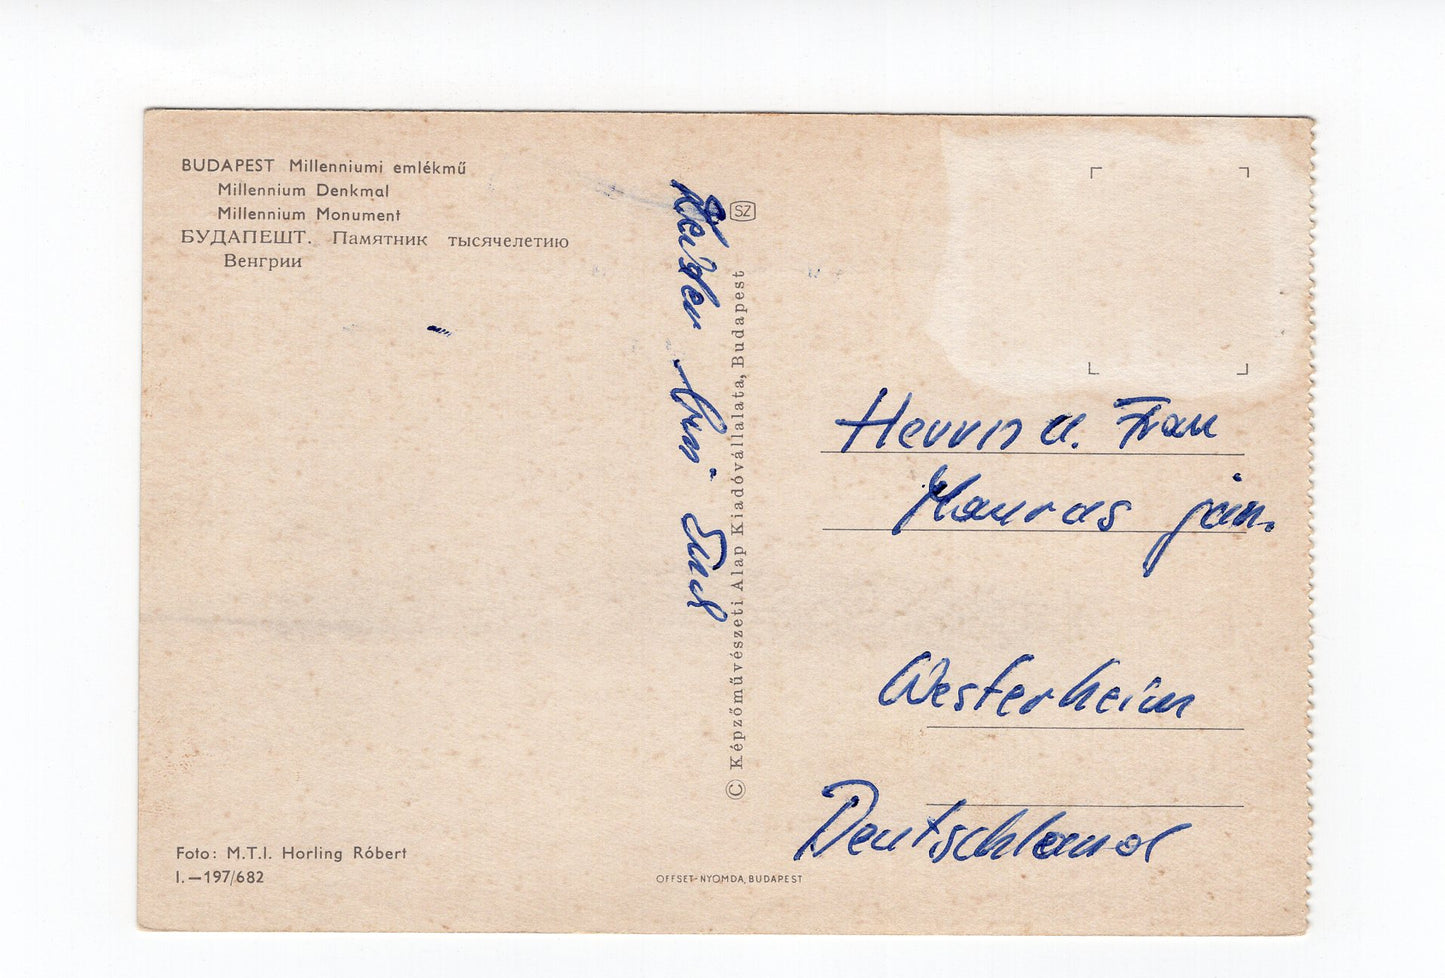 BUDAPEST Millenniumi emlékmű
Millennium Denkmal
Millennium Monument
БУДАПЕШТ. Памятник тысячелетию
Венгрии
SZ
© Képzőművészeti Alap Kiadóvállalata, Budapest
Herrn u. Frau
jun.
Westerheim
Deutschland
Foto: M.T.I. Horling Róbert
I.—197/682
OFFSET-NYOMDA, BUDAPEST